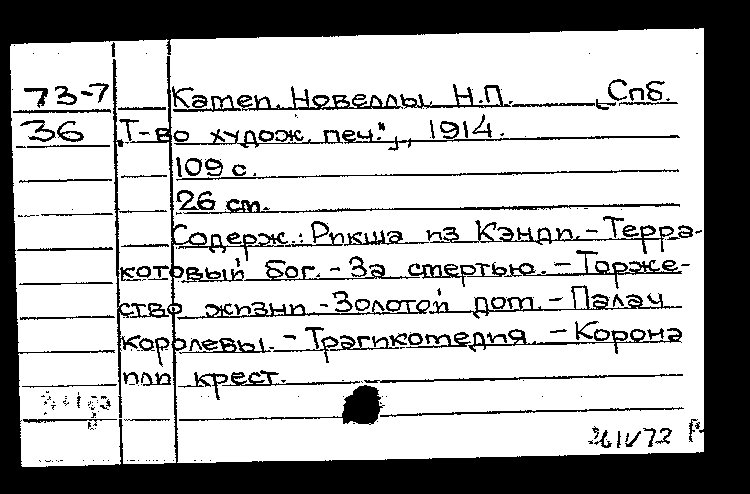 73-7 Камеп. Новеллы. Н.П. [Спб.
36 "Т-во худож. печ."], 1914.
109 с.
26 см.
Содерж.: Рикша из Кэнди. - Терра-
котовый бог. - За смертью. - Торже-
ство жизни - Золотой дом. - Палач
королевы. - Трагикомедия. - Корона
или крест.
26 IV 72